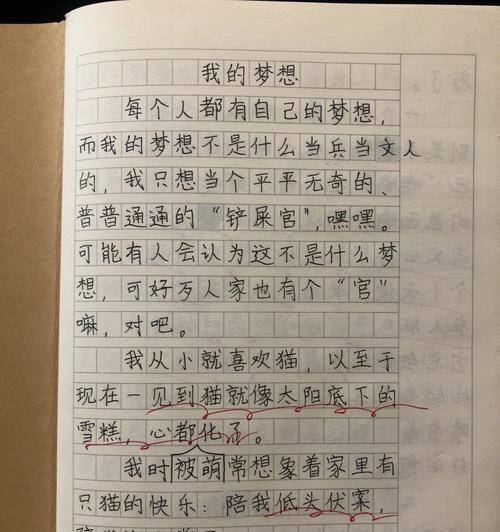 我的梦想
每个人都有自己的梦想，
而我的梦想不是什么当兵当文人
的，我只想当个平平无奇的、
普普通通的“铲屎官”，嘿嘿。
可能有人会认为这不是什么梦
想，可好歹人家也有个“官”
嘛，对吧。
我从小就喜欢猫，以至于
现在一见到猫就像太阳底下的
雪糕，心都化了。
我时被萌常想象着家里有
只猫的快乐：陪我低头伏案，